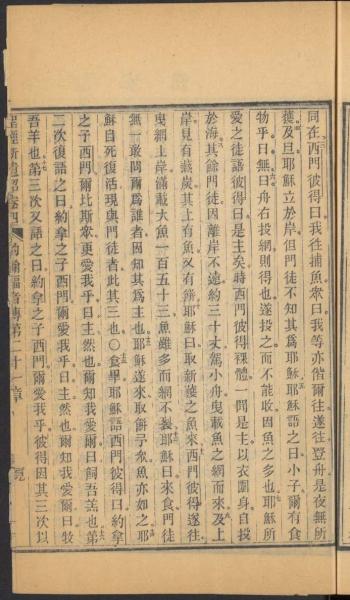 同在西門彼得曰我往捕魚眾曰我等亦偕爾往遂往登舟是夜無所
獲及旦耶穌立於岸但門徒不知其爲耶穌耶穌語之曰小子爾有食
物乎曰無曰舟右投網則得也遂投之而不能收因魚之多也耶穌所
愛之徒語彼得曰是主矣時西門彼得裸體一聞是主以衣圍身自投
於海其餘門徒因離岸不遠約三十丈駕小舟曳載魚之網而來及上
岸見有熾炭其上有魚又有餅耶穌曰取新獲之魚來西門彼得遂往
曳網上岸滿載大魚一百五十三魚雖多而網不裂耶穌曰來食門徒
無一敢問爾爲誰者因知其爲主也耶穌遂來取餅予眾魚亦如之耶
穌自死復活現與門徒者此其三也○食畢耶穌語西門彼得曰約拿
之子西門爾比斯眾更愛我乎曰主然也爾知我愛爾曰飼吾羔也第
二次復語之曰約拿之子西門爾愛我乎曰主然也爾知我愛爾曰牧
吾羊也第三次又語之曰約拿之子西門爾愛我乎彼得因其三次以
約翰福音傳第二十一章